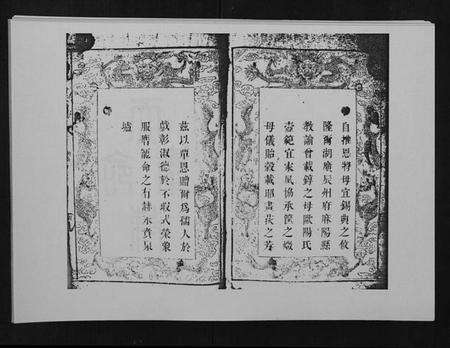 自推恩將母宜錫典之攸
隆爾湖廣辰州府麻陽縣
教諭曾載錞之母歐陽氏
壺範宜家夙協承筐之媺
母儀貽穀載耶書荻之芳
茲以覃恩贈爾為孺人於
戲彰淑德於不瑕式榮象
服膺寵命之有赫永賁泉
壚